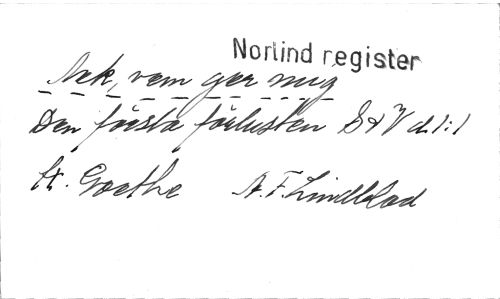 Norlind register
Ack, vem ger mig
Den första förlusten S & V d. 1:1
Goethe A. F. Lindblad